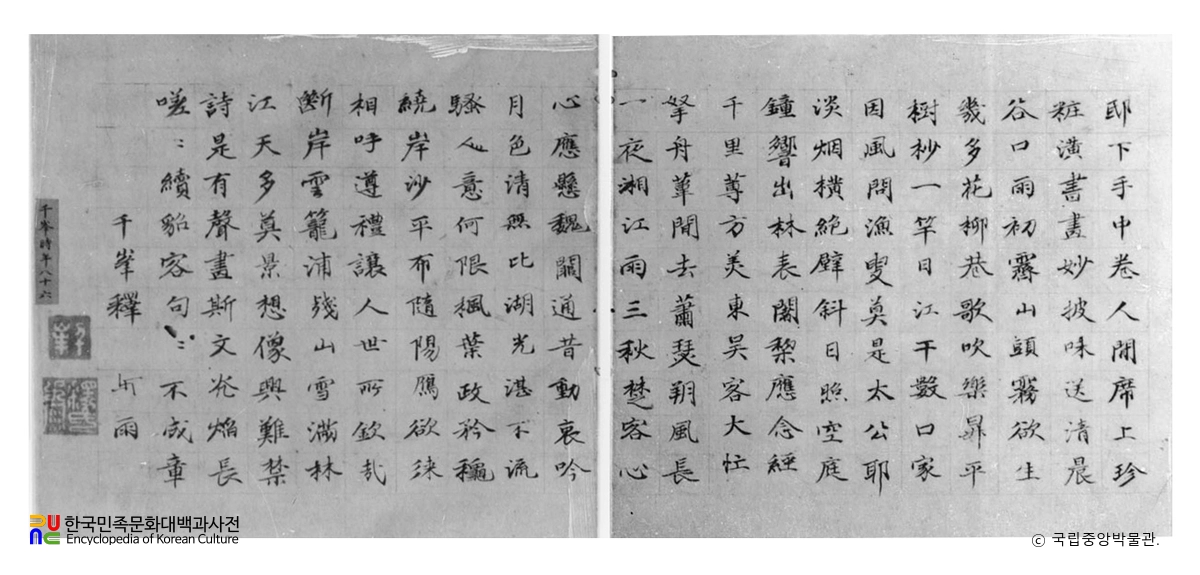 邸下手中卷人間席上珍
粧潢書畫妙披味送清晨
谷口雨初霽山頭霧欲生
幾多花柳巷歌吹樂昇平
樹杪一竿日江干數口家
因風問漁叟莫是太公耶
淡烟橫絶壁斜日照空庭
鐘響出林表闍黎應念經
千里尊方美東吳客大忙
拏舟葦間去蕭瑟朔風長
一夜湘江雨三秋楚客心
心應懸魏闕通昔動哀吟
月色清無比湖光湛不流
騷人意何限楓葉政矜穠
繞岸沙平布隨陽鴈欲來
相呼遵禮讓人世所欽哉
斷岸雲籠浦殘山雪滿林
江天多莫景想像興難禁
詩是有聲畫斯文光焰長
嗟〻續貂容句〻不成章
千峯釋卍雨
千峯時年八十六
한국민족문화대백과사전
Encyclopedia of Korean Culture
ⓒ 국립중앙박물관.